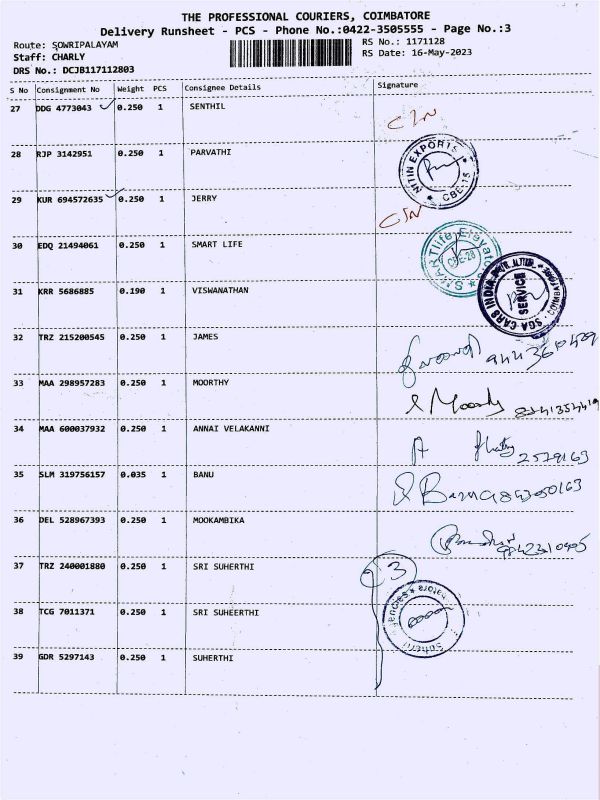 THE PROFESSIONAL COURIERS, COIMBATORE
Delivery Runsheet - PCS - Phone No.:0422-3505555 - Page No.:3
Route: SOWRIPALAYAM RS No.: 1171128
Staff: CHARLY RS Date: 16-May-2023
DRS No.: DCJB117112803
S No Consignment No Weight PCS Consignee Details Signature
27 DDG 4773043 0.250 1 SENTHIL
28 RJP 3142951 0.250 1 PARVATHI
NITIN EXPORTS
CBE-15
29 KUR 694572635 0.250 1 JERRY
30 EDQ 21494061 0.250 1 SMART LIFE
CBE-28
31 KRR 5686885 0.190 1 VISWANATHAN
SGA CARS INDIA
SERVICE
32 TRZ 215200545 0.250 1 JAMES
33 MAA 298957283 0.250 1 MOORTHY
Moorthy
34 MAA 600037932 0.250 1 ANNAI VELAKANNI
2579163
35 SLM 319756157 0.035 1 BANU
Banu
36 DEL 528967393 0.250 1 MOOKAMBIKA
37 TRZ 240001880 0.250 1 SRI SUHERTHI
3
38 TCG 7011371 0.250 1 SRI SUHEERTHI
39 GDR 5297143 0.250 1 SUHERTHI